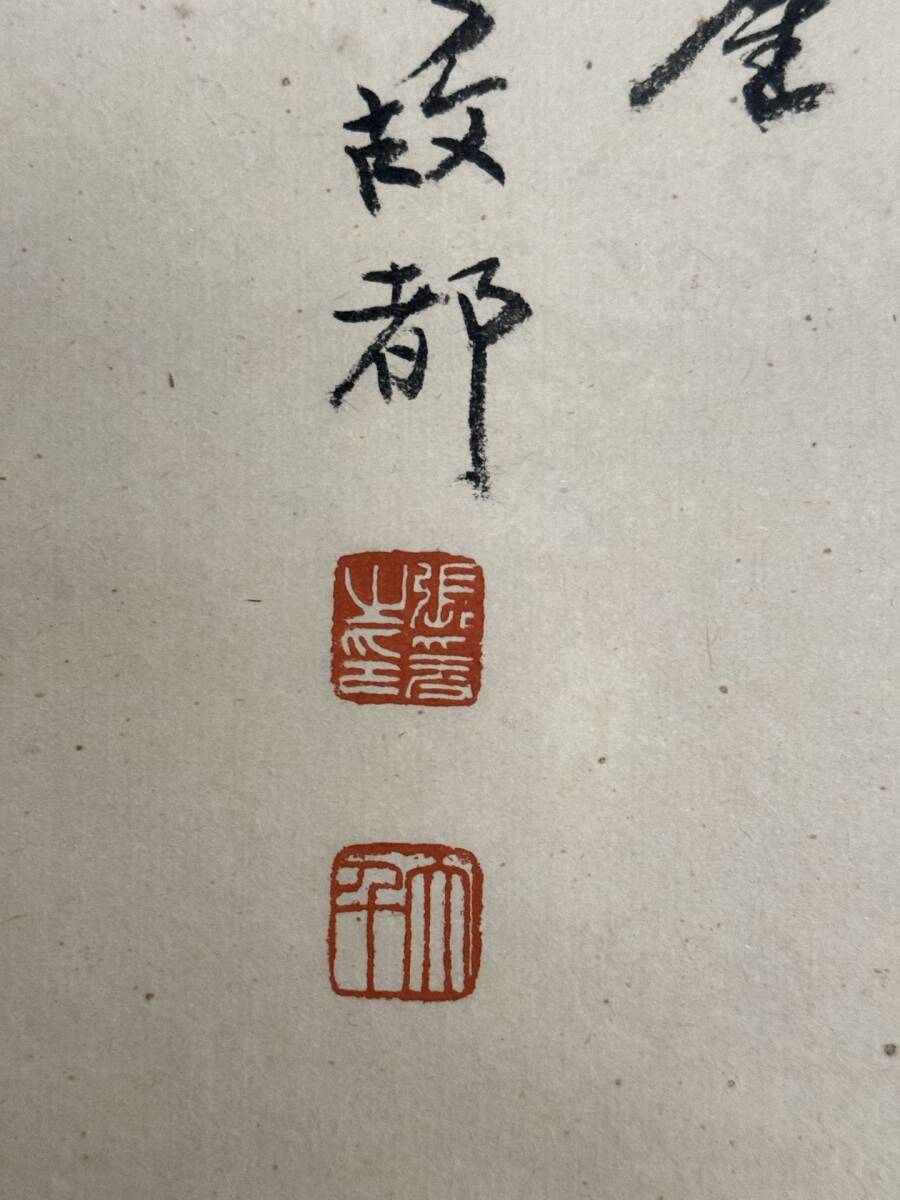 故都
張爰之印
大千